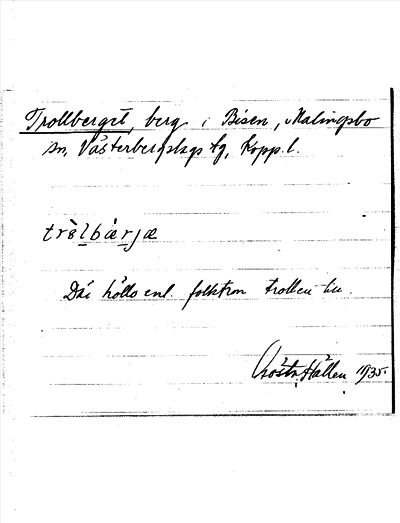 Trollberget, berg i Bisen, Malingsbo
sn, Västerbergslags tg, Kopp. l.
tròlbæ̀rjæ
Där höllo enl. folktron trollen till.
Gösta Hallén 1935.